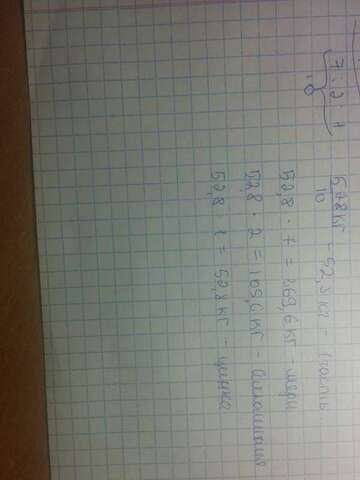 7:2:1
10
528кг
10
= 52,8 кг - 1 часть
52,8 · 7 = 369,6 кг - меди
52,8 · 2 = 105,6 кг - алюминия
52,8 · 1 = 52,8 кг - цинка